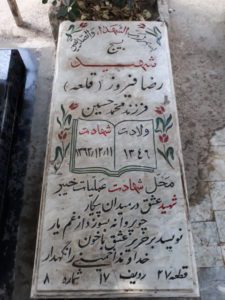 بسم رب الشهداء والصدیقین
بسیج
شهید
رضا فیروز (قلعه)
فرزند محمد حسین
ولادت شهادت
۱۳۴۶ ۱۳۶۲/۱۲/۱۱
محل شهادت عملیات خیبر
شهید عشق در میدان پیکار
چو پروانه بسوزد از غم یار
نویسد بر حریر عشق با خون
خداوندا خمینی را نگهدار
قطعه ۲۷ ردیف ۱۷ شماره ۸